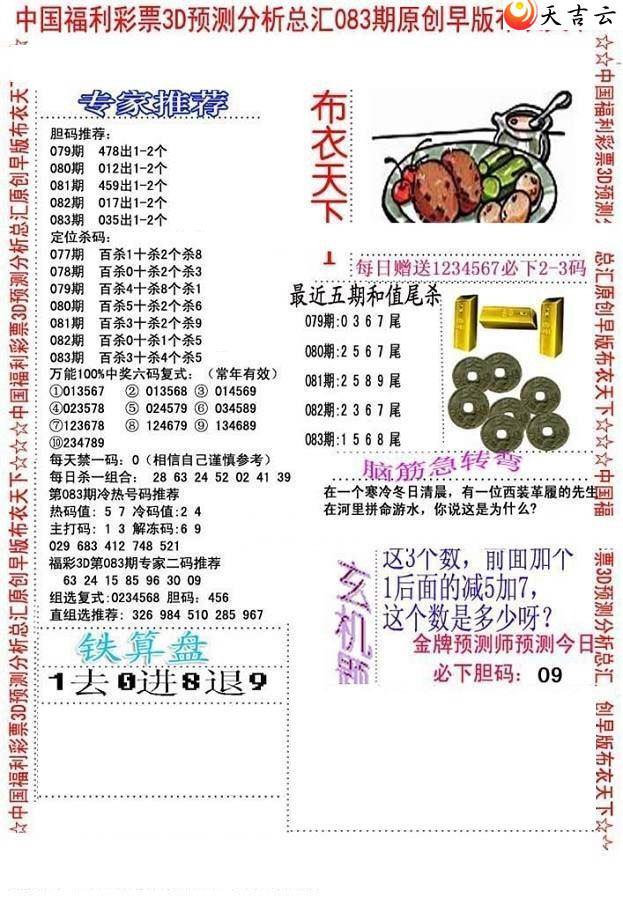 中国福利彩票3D预测分析总汇083期原创早版布衣天下
天吉云
☆☆中国福利彩票3D预测分
总汇原创早版布衣天下☆☆☆中国福
票3D预测分析总汇
创早版布衣天下☆
☆中国福利彩票3D预测分析总汇原创早版布衣天下☆☆☆中国福利彩票3D预测分析总汇原创早版布衣天
专家推荐
胆码推荐：
079期 478出1-2个
080期 012出1-2个
081期 459出1-2个
082期 017出1-2个
083期 035出1-2个
定位杀码：
077期 百杀1十杀2个杀8
078期 百杀0十杀2个杀3
079期 百杀4十杀8个杀1
080期 百杀5十杀2个杀6
081期 百杀3十杀2个杀9
082期 百杀0十杀1个杀5
083期 百杀3十杀4个杀5
万能100%中奖六码复式：（常年有效）
①013567 ② 013568 ③ 014569
④023578 ⑤ 024579 ⑥ 034589
⑦123678 ⑧ 124679 ⑨ 134689
⑩234789
每天禁一码：0（相信自己谨慎参考）
每日杀一组合： 28 63 24 52 02 41 39
第083期冷热号码推荐
热码值：5 7 冷码值:2 4
主打码：1 3 解冻码:6 9
029 683 412 748 521
福彩3D第083期专家二码推荐
63 24 15 85 96 30 09
组选复式:0234568 胆码：456
直组选推荐: 326 984 510 285 967
铁算盘
1去0进8退9
布衣天下
每日赠送1234567必下2-3码
最近五期和值尾杀
079期:0 3 6 7 尾
080期:2 5 6 7 尾
081期:2 5 8 9 尾
082期:2 3 6 7 尾
083期:1 5 6 8 尾
脑筋急转弯
在一个寒冷冬日清晨，有一位西装革履的先生
在河里拼命游水，你说这是为什么?
玄机题
这3个数，前面加个
1后面的减5加7,
这个数是多少呀?
金牌预测师预测今日
必下胆码： 09